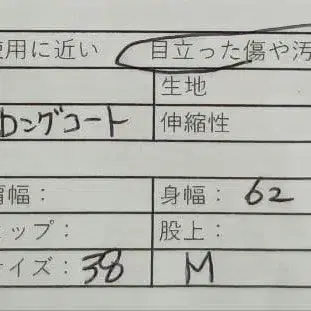 使用に近い 目立った傷や汚
生地
ロングコート 伸縮性
肩幅： 身幅：62
ヒップ： 股上：
サイズ：38 M